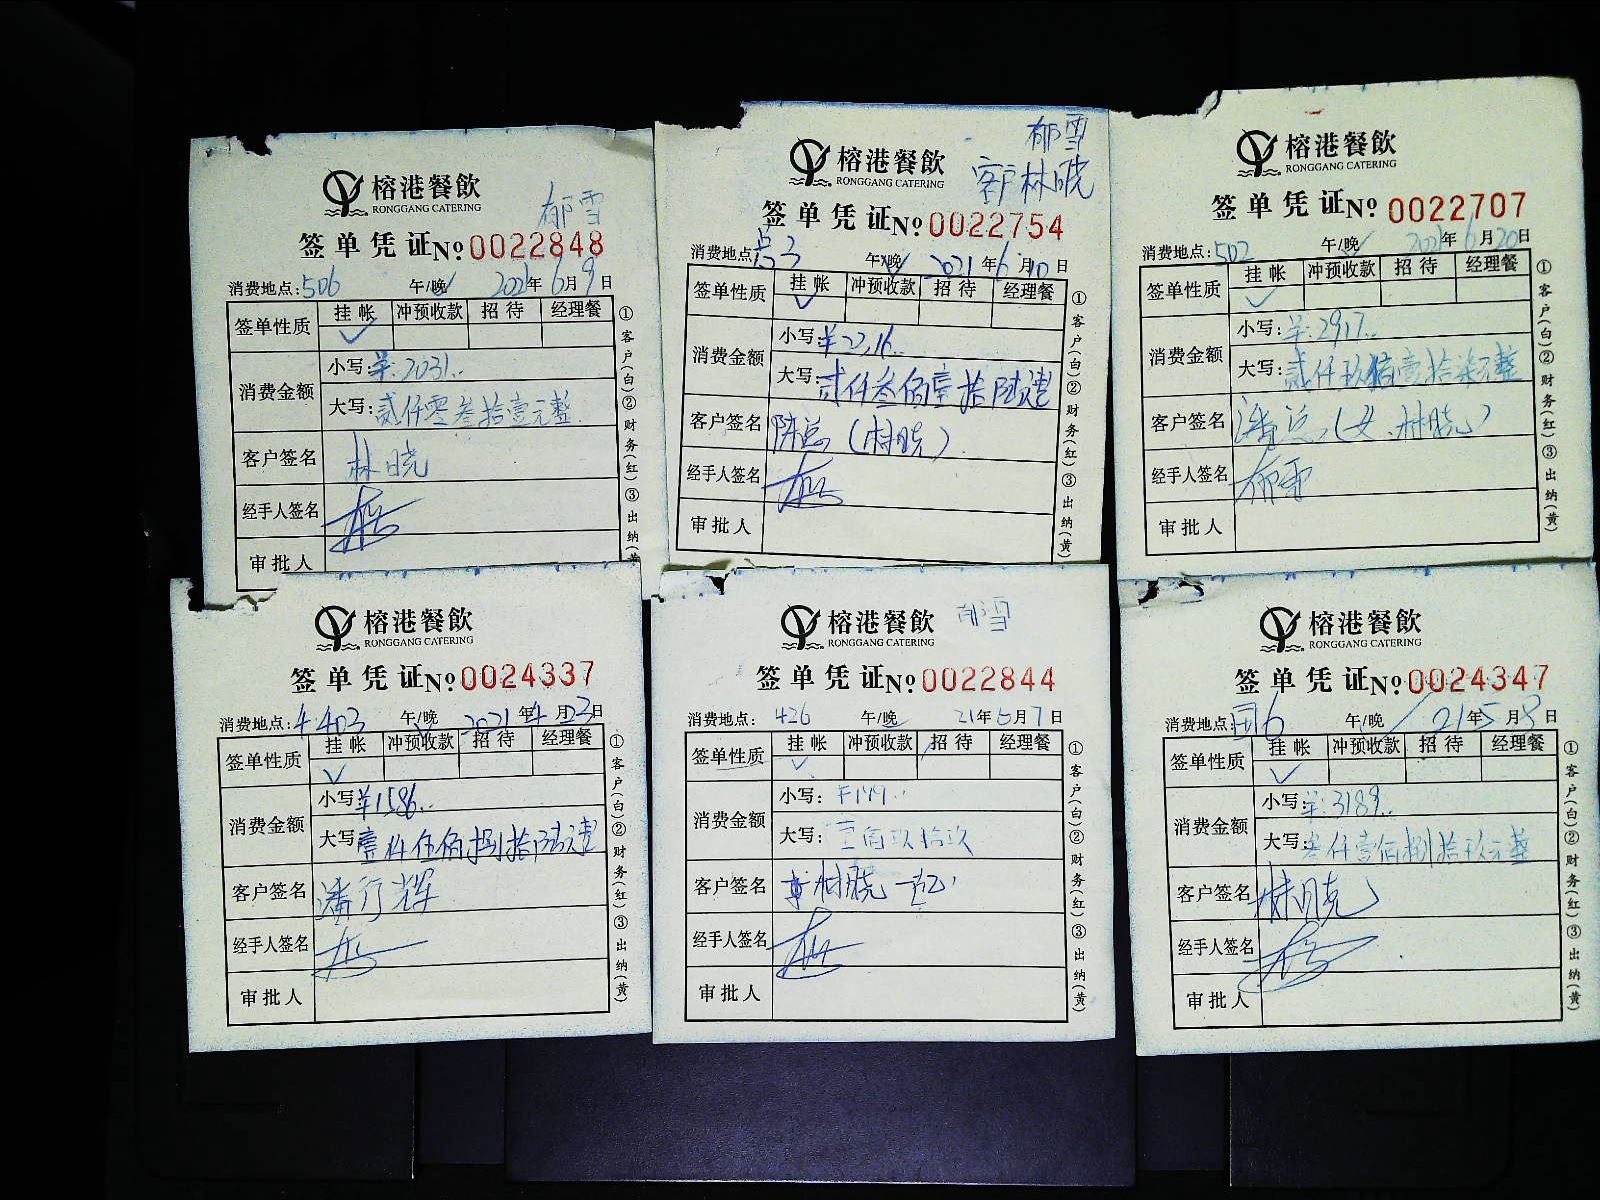 榕港餐飲
RONGGANG CATERING
郁雪
签单凭证№0022848
消费地点:506 午/晚 2021年6月9日
签单性质 挂帐 冲预收款 招待 经理餐
✓
消费金额 小写:¥:2031..
大写:贰仟零叁拾壹元整
客户签名 林晓
经手人签名
审批人
①客户(白)②财务(红)③出纳(黄
榕港餐飲
RONGGANG CATERING
郁雪
客户林晓
签单凭证№0022754
消费地点: 午/晚 2021年6月10日
签单性质 挂帐 冲预收款 招待 经理餐
✓
消费金额 小写:
大写:贰仟叁佰壹拾陆元整
客户签名 陈总(林晓)
经手人签名
审批人
①客户(白)②财务(红)③出纳(黄)
榕港餐飲
RONGGANG CATERING
签单凭证№0022707
消费地点:502 午/晚 2021年6月20日
签单性质 挂帐 冲预收款 招待 经理餐
✓
消费金额 小写:¥:2917..
大写:贰仟玖佰壹拾柒元整
客户签名 潘总(女.林晓)
经手人签名 郁雪
审批人
①客户(白)②财务(红)③出纳(黄)
榕港餐飲
RONGGANG CATERING
签单凭证№0024337
消费地点:4403 午/晚 2021年4月23日
签单性质 挂帐 冲预收款 招待 经理餐
✓
消费金额 小写:¥1586..
大写:壹仟伍佰捌拾陆元整
客户签名 潘行辉
经手人签名
审批人
①客户(白)②财务(红)③出纳(黄)
榕港餐飲
RONGGANG CATERING
郁雪
签单凭证№0022844
消费地点:426 午/晚 21年6月7日
签单性质 挂帐 冲预收款 招待 经理餐
✓
消费金额 小写:¥199..
大写:壹佰玖拾玖
客户签名
经手人签名
审批人
①客户(白)②财务(红)③出纳(黄)
榕港餐飲
RONGGANG CATERING
签单凭证№0024347
消费地点: 6 午/晚 21年5月8日
签单性质 挂帐 冲预收款 招待 经理餐
✓
消费金额 小写:¥:3189..
大写:叁仟壹佰捌拾玖元整
客户签名 林晓
经手人签名
审批人
①客户(白)②财务(红)③出纳(黄)